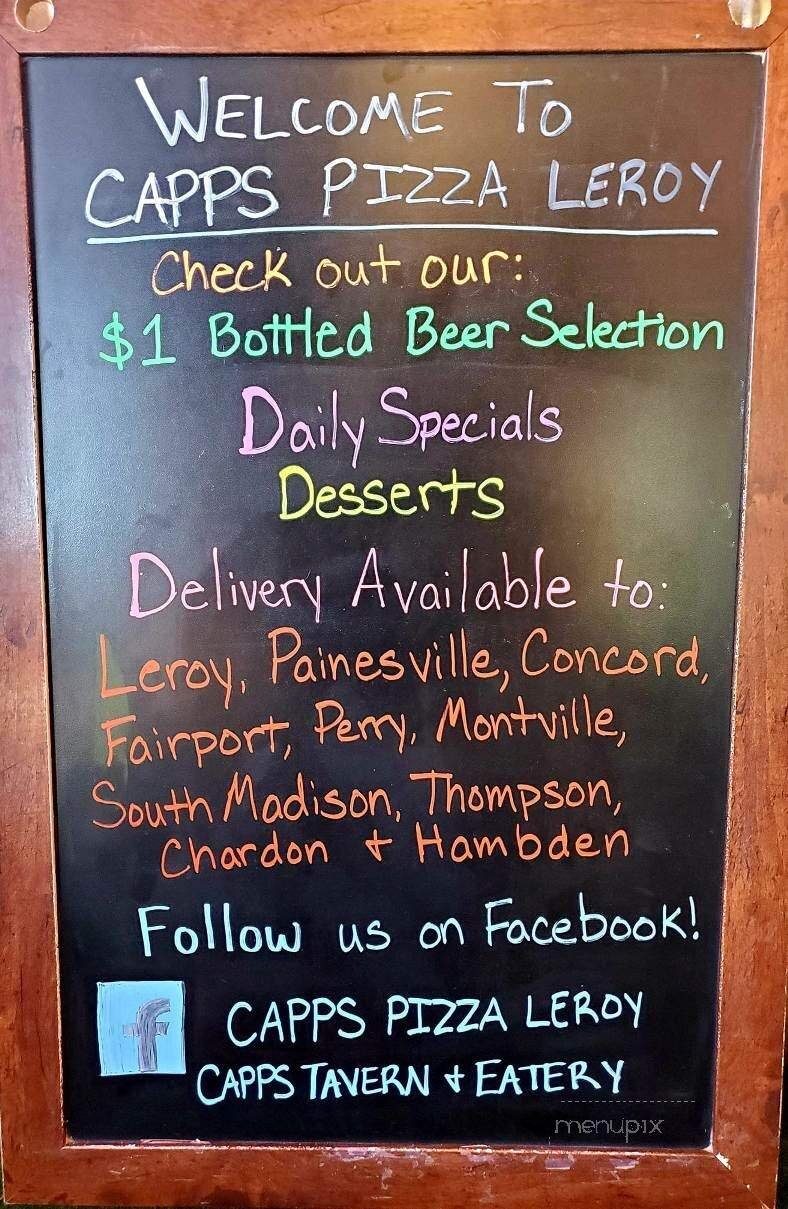 WELCOME TO
CAPPS PIZZA LEROY
Check out our:
$1 Bottled Beer Selection
Daily Specials
Desserts
Delivery Available to:
Leroy, Painesville, Concord,
Fairport, Perry, Montville,
South Madison, Thompson,
Chardon + Hambden
Follow us on Facebook!
f CAPPS PIZZA LEROY
CAPPS TAVERN + EATERY
menupix